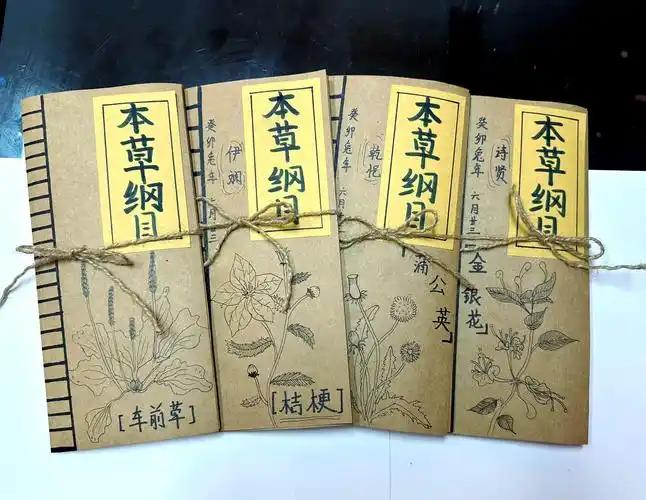 本草纲目
[车前草]
癸卯兔年 六月廿三
伊斓
本草纲目
[桔梗]
癸卯兔年 六月
乾悒
本草纲
蒲公英」
癸卯兔年 六月廿三
诗贤
本草纲目
金银花」